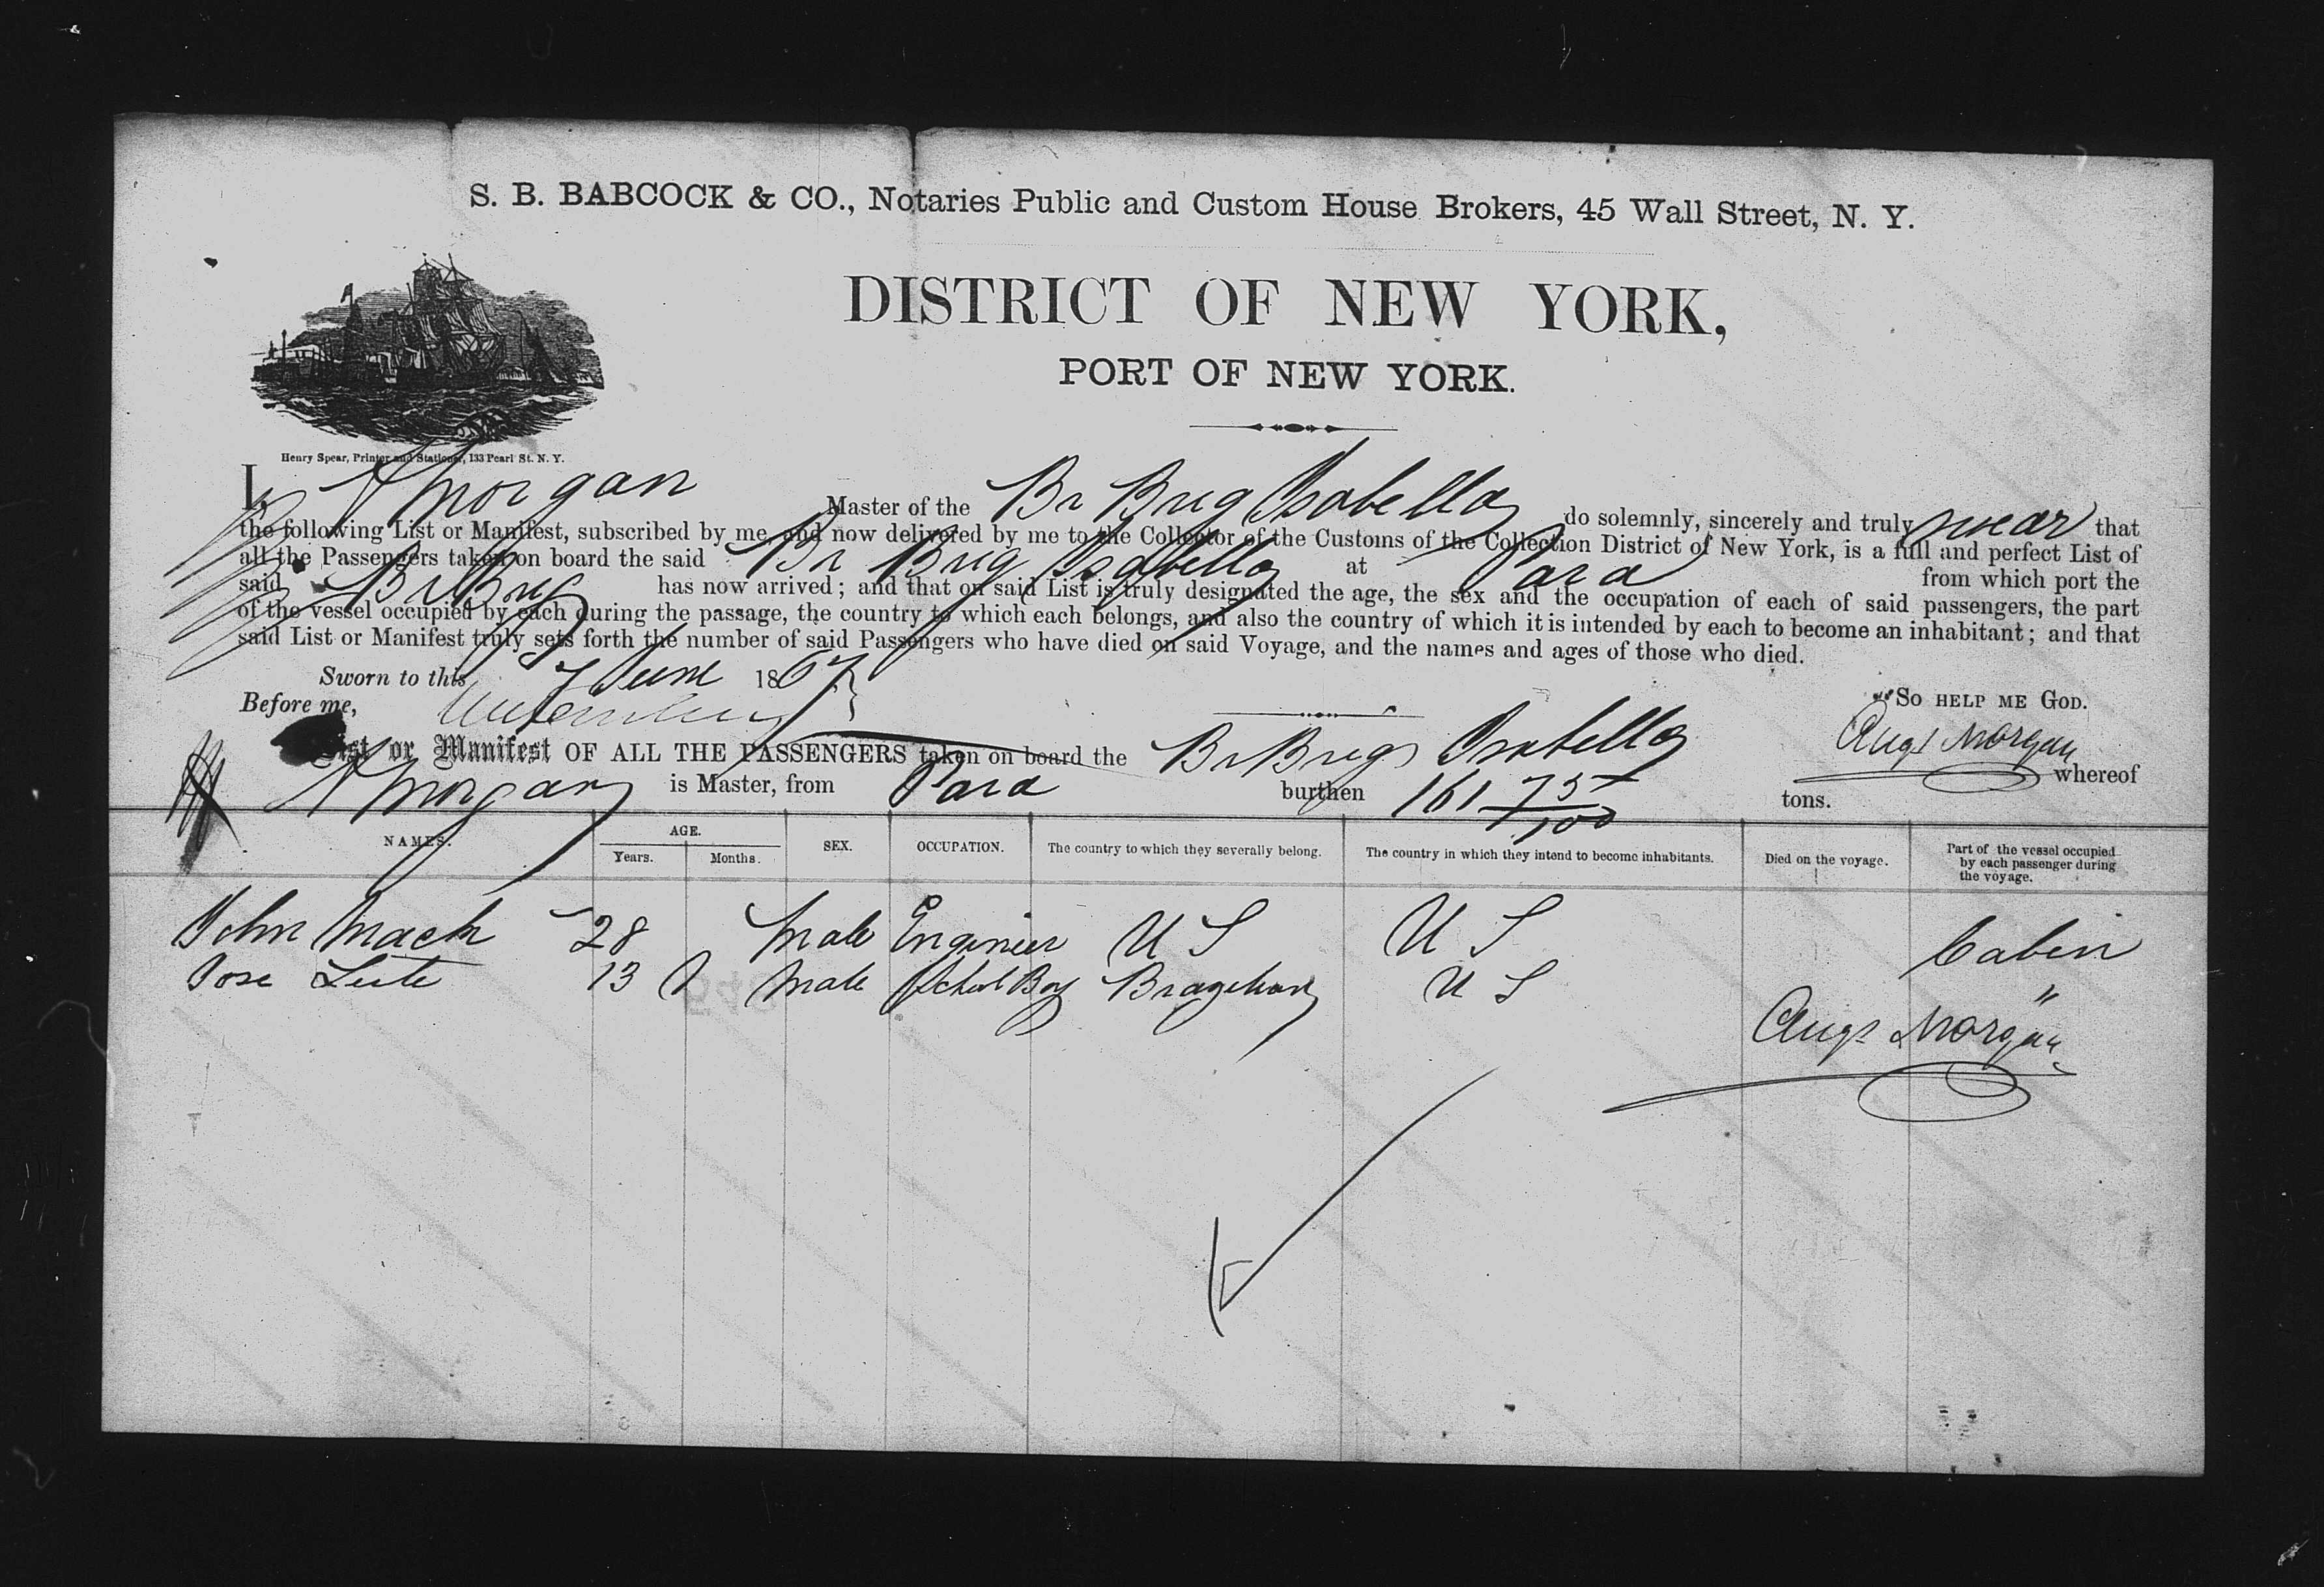 S. B. BABCOCK & CO., Notaries Public and Custom House Brokers, 45 Wall Street, N. Y.
DISTRICT OF NEW YORK,
PORT OF NEW YORK.
Henry Spear, Printer and Stationer, 133 Pearl St. N. Y.
I, A Morgan Master of the Br Brig Isabella do solemnly, sincerely and truly swear that
the following List or Manifest, subscribed by me, and now delivered by me to the Collector of the Customs of the Collection District of New York, is a full and perfect List of
all the Passengers taken on board the said Br Brig Isabella at Para from which port the
said Br Brig has now arrived; and that on said List is truly designated the age, the sex and the occupation of each of said passengers, the part
of the vessel occupied by each during the passage, the country to which each belongs, and also the country of which it is intended by each to become an inhabitant; and that
said List or Manifest truly sets forth the number of said Passengers who have died on said Voyage, and the names and ages of those who died.
Sworn to this 7 June 1867
So HELP ME GOD.
Before me,
Augs Morgan
List or Manifest OF ALL THE PASSENGERS taken on board the Br Brig Isabella whereof
A Morgan is Master, from Para burthen 161 75/100 tons.
NAMES. AGE. SEX. OCCUPATION. The country to which they severally belong. The country in which they intend to become inhabitants. Died on the voyage. Part of the vessel occupied by each passenger during the voyage.
Years. Months.
John Mack 28 Male Engineer U S U S Cabin
Jose Leite 13 Male School Boy Brazilian U S "
Augs Morgan